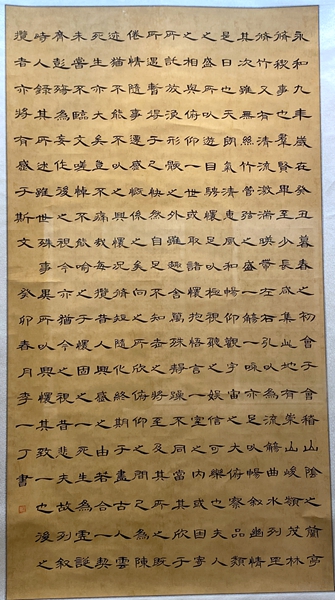 永和九年歲在癸丑暮春之初會于會稽山陰之蘭亭
脩禊事也羣賢畢至少長咸集此地有崇山峻領茂林
脩竹又有清流激湍暎帶左右引以為流觴曲水列坐
其次雖無絲竹管弦之盛一觴一詠亦足以暢敘幽情
是日也天朗氣清惠風和暢仰觀宇宙之大俯察品類
之盛所以遊目騁懷足以極視聽之娛信可樂也夫人
之相與俯仰一世或取諸懷抱悟言一室之內或因寄
所託放浪形骸之外雖趣舍萬殊靜躁不同當其欣於
所遇暫得於己快然自足不知老之將至及其所之既
倦情隨事遷感慨係之矣向之所欣俯仰之間已為陳
迹猶不能不以之興懷況脩短隨化終期於盡古人云
死生亦大矣豈不痛哉每攬昔人興感之由若合一契
未嘗不臨文嗟悼不能喻之於懷固知一死生為虛誕
齊彭殤為妄作後之視今亦猶今之視昔悲夫故列敘
時人錄其所述雖世殊事異所以興懷其致一也後之
攬者亦將有感於斯文 癸卯春月李一丁書